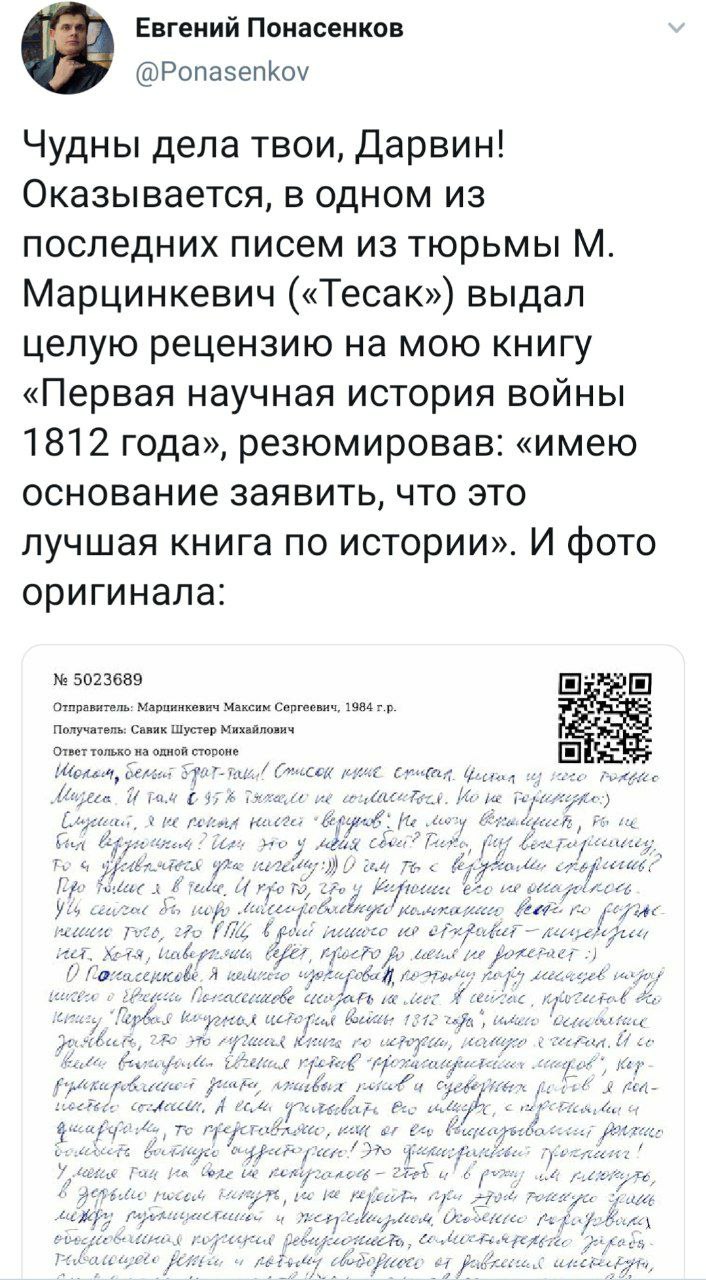 Евгений Понасенков
@Ponasenkov
Чудны дела твои, Дарвин!
Оказывается, в одном из
последних писем из тюрьмы М.
Марцинкевич («Тесак») выдал
целую рецензию на мою книгу
«Первая научная история войны
1812 года», резюмировав: «имею
основание заявить, что это
лучшая книга по истории». И фото
оригинала:
№ 5023689
Отправитель: Марцинкевич Максим Сергеевич, 1984 г.р.
Получатель: Савик Шустер Михайлович
Ответ только на одной стороне
Шолом, белый брат-таки! Список книг списал. Читал из него только
Мизеса. И там с 95% тяжело не согласиться. Но не торкнуло:)
Слушай, я не понял насчет "верунов". Не могу вспомнить, ты не
был верующим? Или это у меня сбой? Типа, раз вегетарианец,
то и удивляться уже нечему:))) О чем ты с верунами споришь?
Про Голос я в теме. И про то, что у Кирюши его не оказалось.
сейчас бы надо массированную кампанию вести по
того, что РПЦ в рай никого не отправит – лицензии
нет. Хотя, наверняка ведёт, просто до меня не долетает :)
О Понасенкове. Я немного изолирован, поэтому пару месяцев назад
ничего о Евгении Понасенкове сказать не мог. А сейчас, прочитав его
книгу "Первая научная история войны 1812 года", имею основание
заявить, что это лучшая книга по истории, какую я читал. И со
всеми выводами Евгения против "пропагандистских мифов", кор-
румпированной знати, лживых попов и суеверных рабов я пол-
ностью согласен. А если учитывать его имидж, с перстнями и
шарфами, то представляю, как от его высказываний должно
бомбить ватную аудиторию! Это филигранный троллинг!
У меня так на воле не получалось – чтоб и в рожу им плюнуть,
в дерьмо носом ткнуть, но не перейти при этом тонкую грань
между публицистикой и экстремизмом. Особенно порадовала
обоснованная позиция ревизиониста, самостоятельно зараба-
тывающего деньги и потому свободного от давления институти,